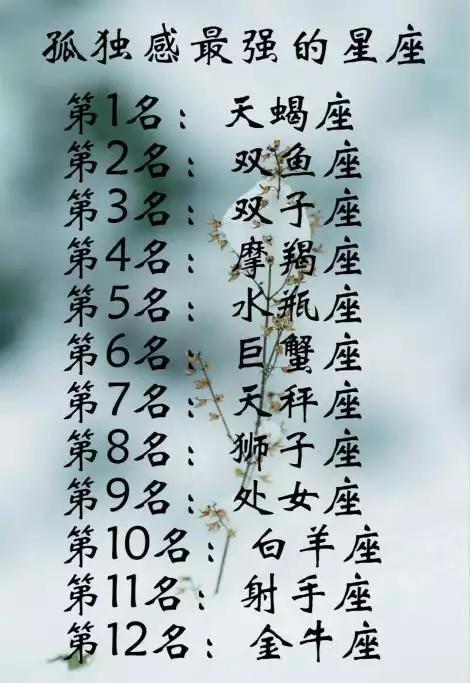 孤独感最强的星座
第1名：天蝎座
第2名：双鱼座
第3名：双子座
第4名：摩羯座
第5名：水瓶座
第6名：巨蟹座
第7名：天秤座
第8名：狮子座
第9名：处女座
第10名：白羊座
第11名：射手座
第12名：金牛座